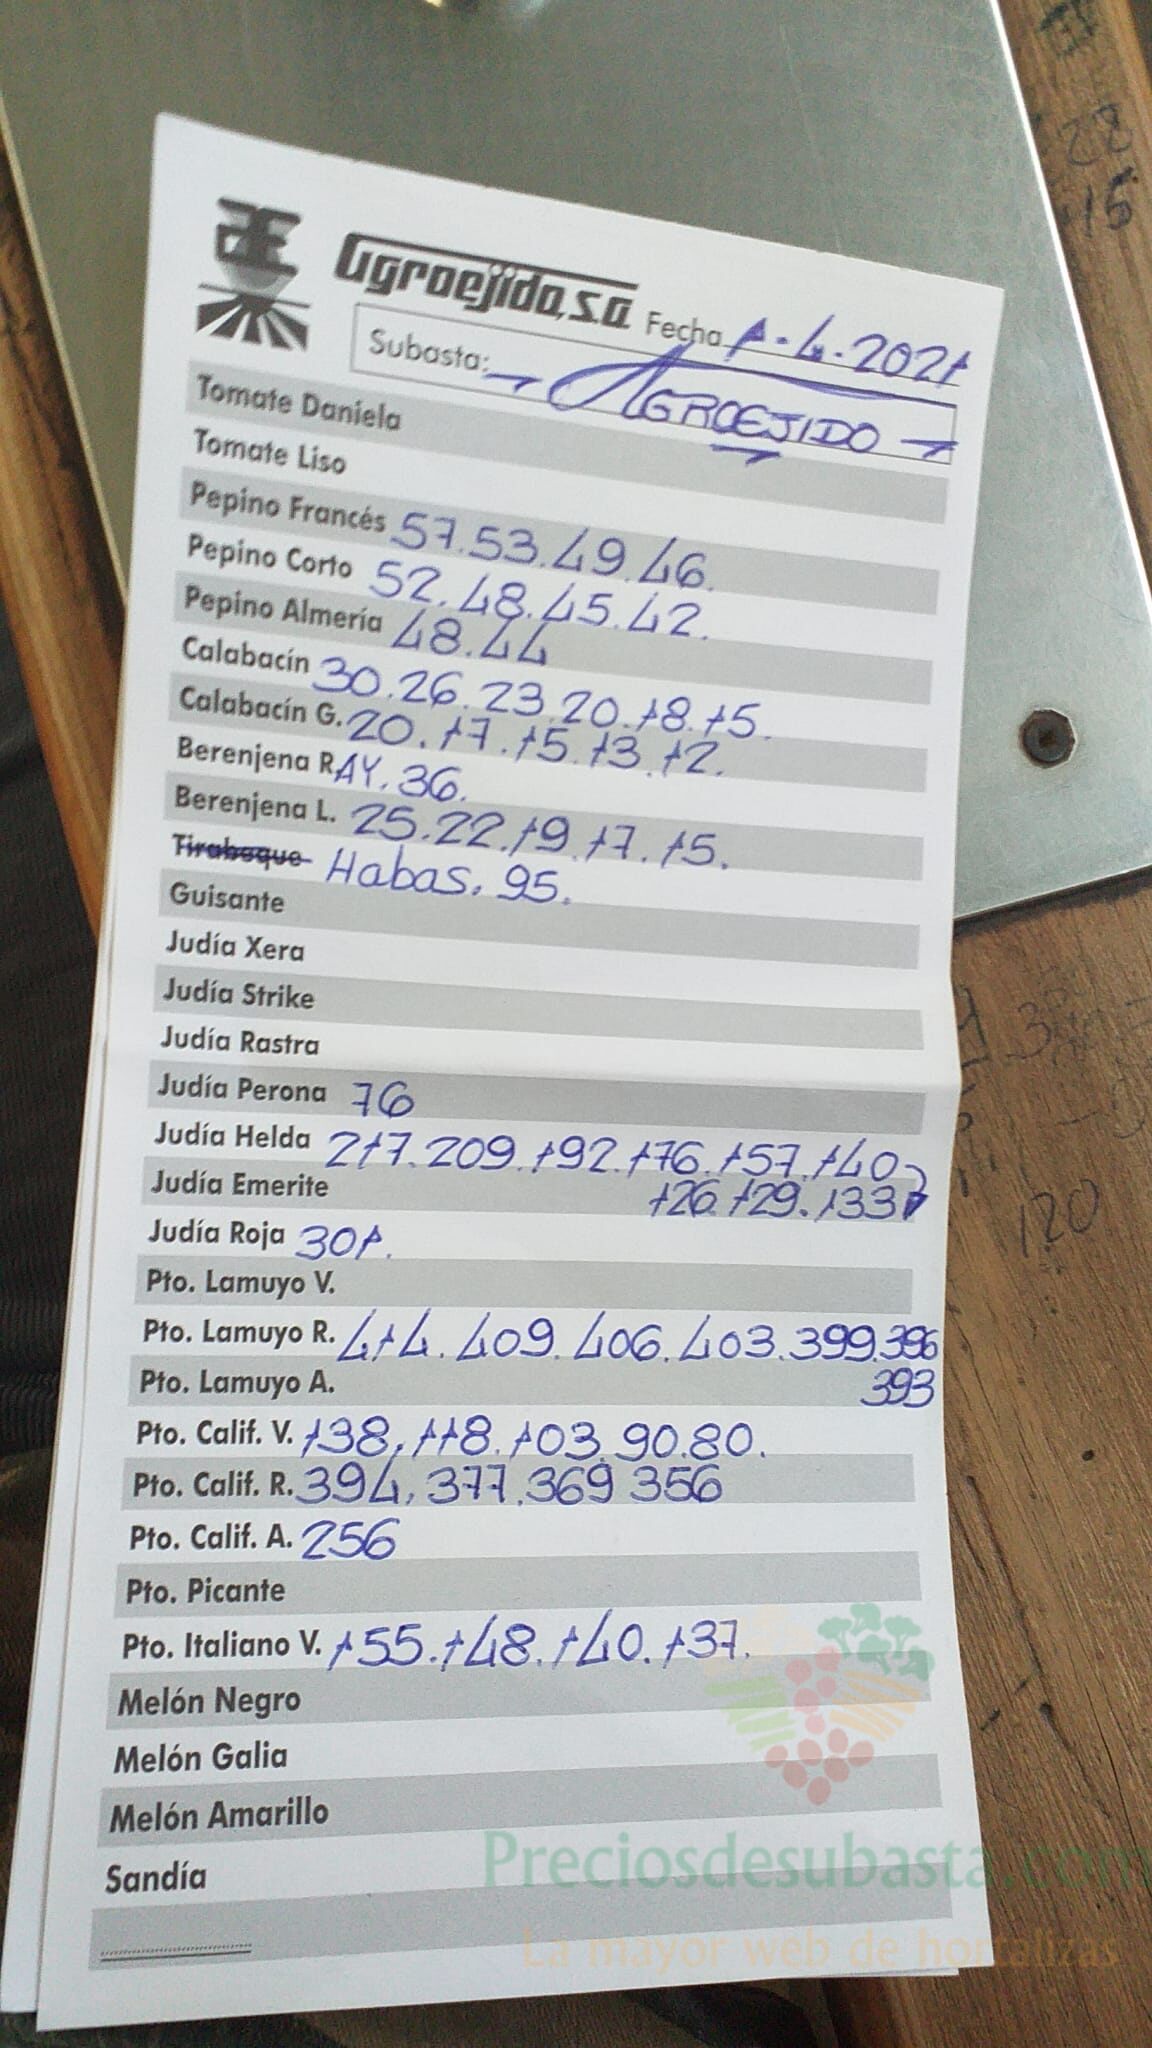 agroejido, s.a. Fecha 1-4-2021
Subasta: AGROEJIDO
Tomate Daniela
Tomate Liso
Pepino Francés 57.53.49.46.
Pepino Corto 52.48.45.42.
Pepino Almería 48.44
Calabacín 30.26.23.20.18.15.
Calabacín G. 20.17.15.13.12.
Berenjena RAY. 36.
Berenjena L. 25.22.19.17.15.
Tirabeque Habas. 95.
Guisante
Judía Xera
Judía Strike
Judía Rastra
Judía Perona 76
Judía Helda 217.209.192.176.157.140
Judía Emerite 126.129.133
Judía Roja 301.
Pto. Lamuyo V.
Pto. Lamuyo R. 414.409.406.403.399.396
Pto. Lamuyo A. 393
Pto. Calif. V. 138.118.103.90.80.
Pto. Calif. R. 394.377.369 356
Pto. Calif. A. 256
Pto. Picante
Pto. Italiano V. 155.148.140.137.
Melón Negro
Melón Galia
Melón Amarillo
Sandía
Preciosdesubasta.com
La mayor web de hortalizas
28
15
120